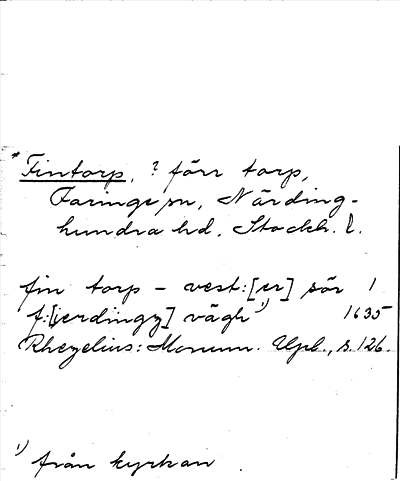 * Fintorp, ? förr torp,
Faringe sn, Närding-
hundra hd, Stockh. l.
fin torp – vest:[er] sör 1
f:[jerdingz] vägh 1) 1635
Rhezelius: Monum. Upl., s. 126.
1) från kyrkan